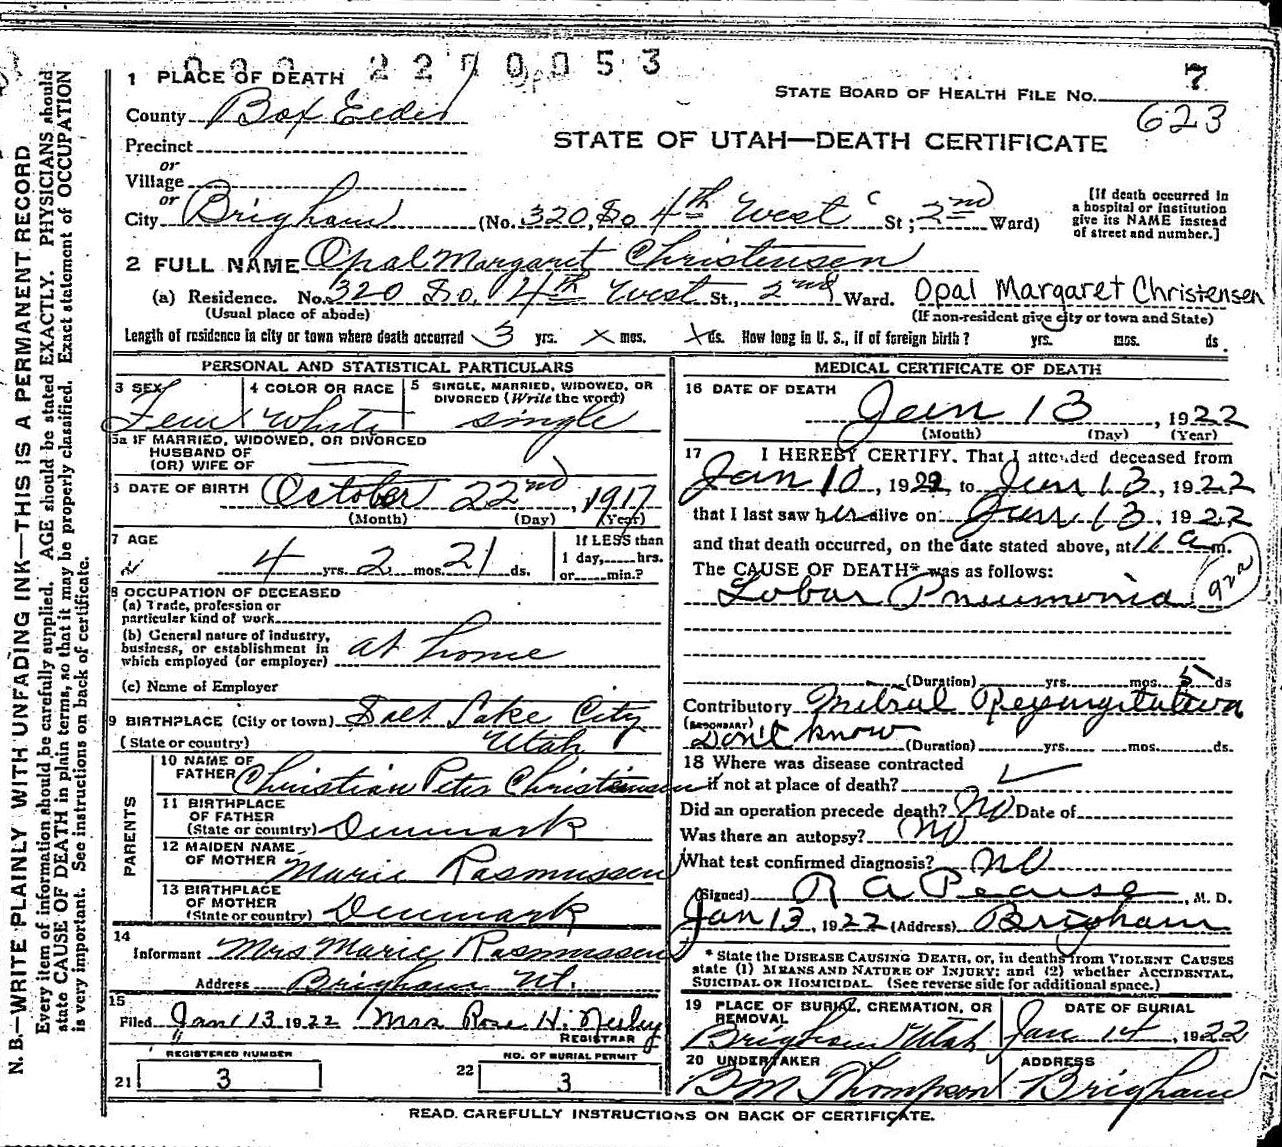 2270053
1 PLACE OF DEATH
STATE BOARD OF HEALTH FILE NO. 7
623
County Box Elder
STATE OF UTAH—DEATH CERTIFICATE
Precinct
or
Village
or
City Brigham (No. 320 So 4th West St; 2nd Ward)
[If death occurred in
a hospital or institution
give its NAME instead
of street and number.]
2 FULL NAME Opal Margaret Christensen
(a) Residence. No. 320 So. 4th West St., 2nd Ward. Opal Margaret Christensen
(Usual place of abode) (If non-resident give city or town and State)
Length of residence in city or town where death occurred 3 yrs. X mos. X ds. How long in U. S., if of foreign birth? yrs. mos. ds.
PERSONAL AND STATISTICAL PARTICULARS
3 SEX 4 COLOR OR RACE 5 SINGLE, MARRIED, WIDOWED, OR
DIVORCED (Write the word)
Fem White single
5a IF MARRIED, WIDOWED, OR DIVORCED
HUSBAND OF
(OR) WIFE OF
6 DATE OF BIRTH October 22nd, 1917
(Month) (Day) (Year)
7 AGE 4 yrs. 2 mos. 21 ds.
If LESS than
1 day, hrs.
or min.?
8 OCCUPATION OF DECEASED
(a) Trade, profession or
particular kind of work
(b) General nature of industry,
business, or establishment in
which employed (or employer) at home
(c) Name of Employer
9 BIRTHPLACE (City or town) Salt Lake City
(State or country) Utah
PARENTS
10 NAME OF
FATHER Christian Peter Christensen
11 BIRTHPLACE
OF FATHER
(State or country) Denmark
12 MAIDEN NAME
OF MOTHER Marie Rasmussen
13 BIRTHPLACE
OF MOTHER
(State or country) Denmark
14
Informant Mrs Marie Rasmussen
Address Brigham Ut.
15
Filed Jan 13 1922 Mrs Rose H. Neeley
REGISTRAR
REGISTERED NUMBER NO. OF BURIAL PERMIT
21 3 22 3
MEDICAL CERTIFICATE OF DEATH
16 DATE OF DEATH
Jan 13, 1922
(Month) (Day) (Year)
17 I HEREBY CERTIFY. That I attended deceased from
Jan 10, 1922 to Jan 13, 1922
that I last saw her alive on Jan 13, 1922
and that death occurred, on the date stated above, at 11 a m.
The CAUSE OF DEATH* was as follows:
Lobar Pneumonia 92a
(Duration) yrs. mos. 5 ds
Contributory Mitral Regurgitation
(SECONDARY)
Don't know (Duration) yrs. mos. ds.
18 Where was disease contracted
if not at place of death?
Did an operation precede death? No Date of
Was there an autopsy? No
What test confirmed diagnosis? no
(Signed) R A Pearse, M. D.
Jan 13, 1922 (Address) Brigham
* State the DISEASE CAUSING DEATH, or, in deaths from VIOLENT CAUSES
state (1) MEANS AND NATURE OF INJURY; and (2) whether ACCIDENTAL,
SUICIDAL OR HOMICIDAL. (See reverse side for additional space.)
19 PLACE OF BURIAL, CREMATION, OR
REMOVAL
DATE OF BURIAL
Brigham Utah Jan 14, 1922
20 UNDERTAKER ADDRESS
B M Thompson Brigham
READ CAREFULLY INSTRUCTIONS ON BACK OF CERTIFICATE.
N. B.—WRITE PLAINLY WITH UNFADING INK—THIS IS A PERMANENT RECORD
Every item of information should be carefully supplied. AGE should be stated EXACTLY. PHYSICIANS should
state CAUSE OF DEATH in plain terms, so that it may be properly classified. Exact statement of OCCUPATION
is very important. See instructions on back of certificate.